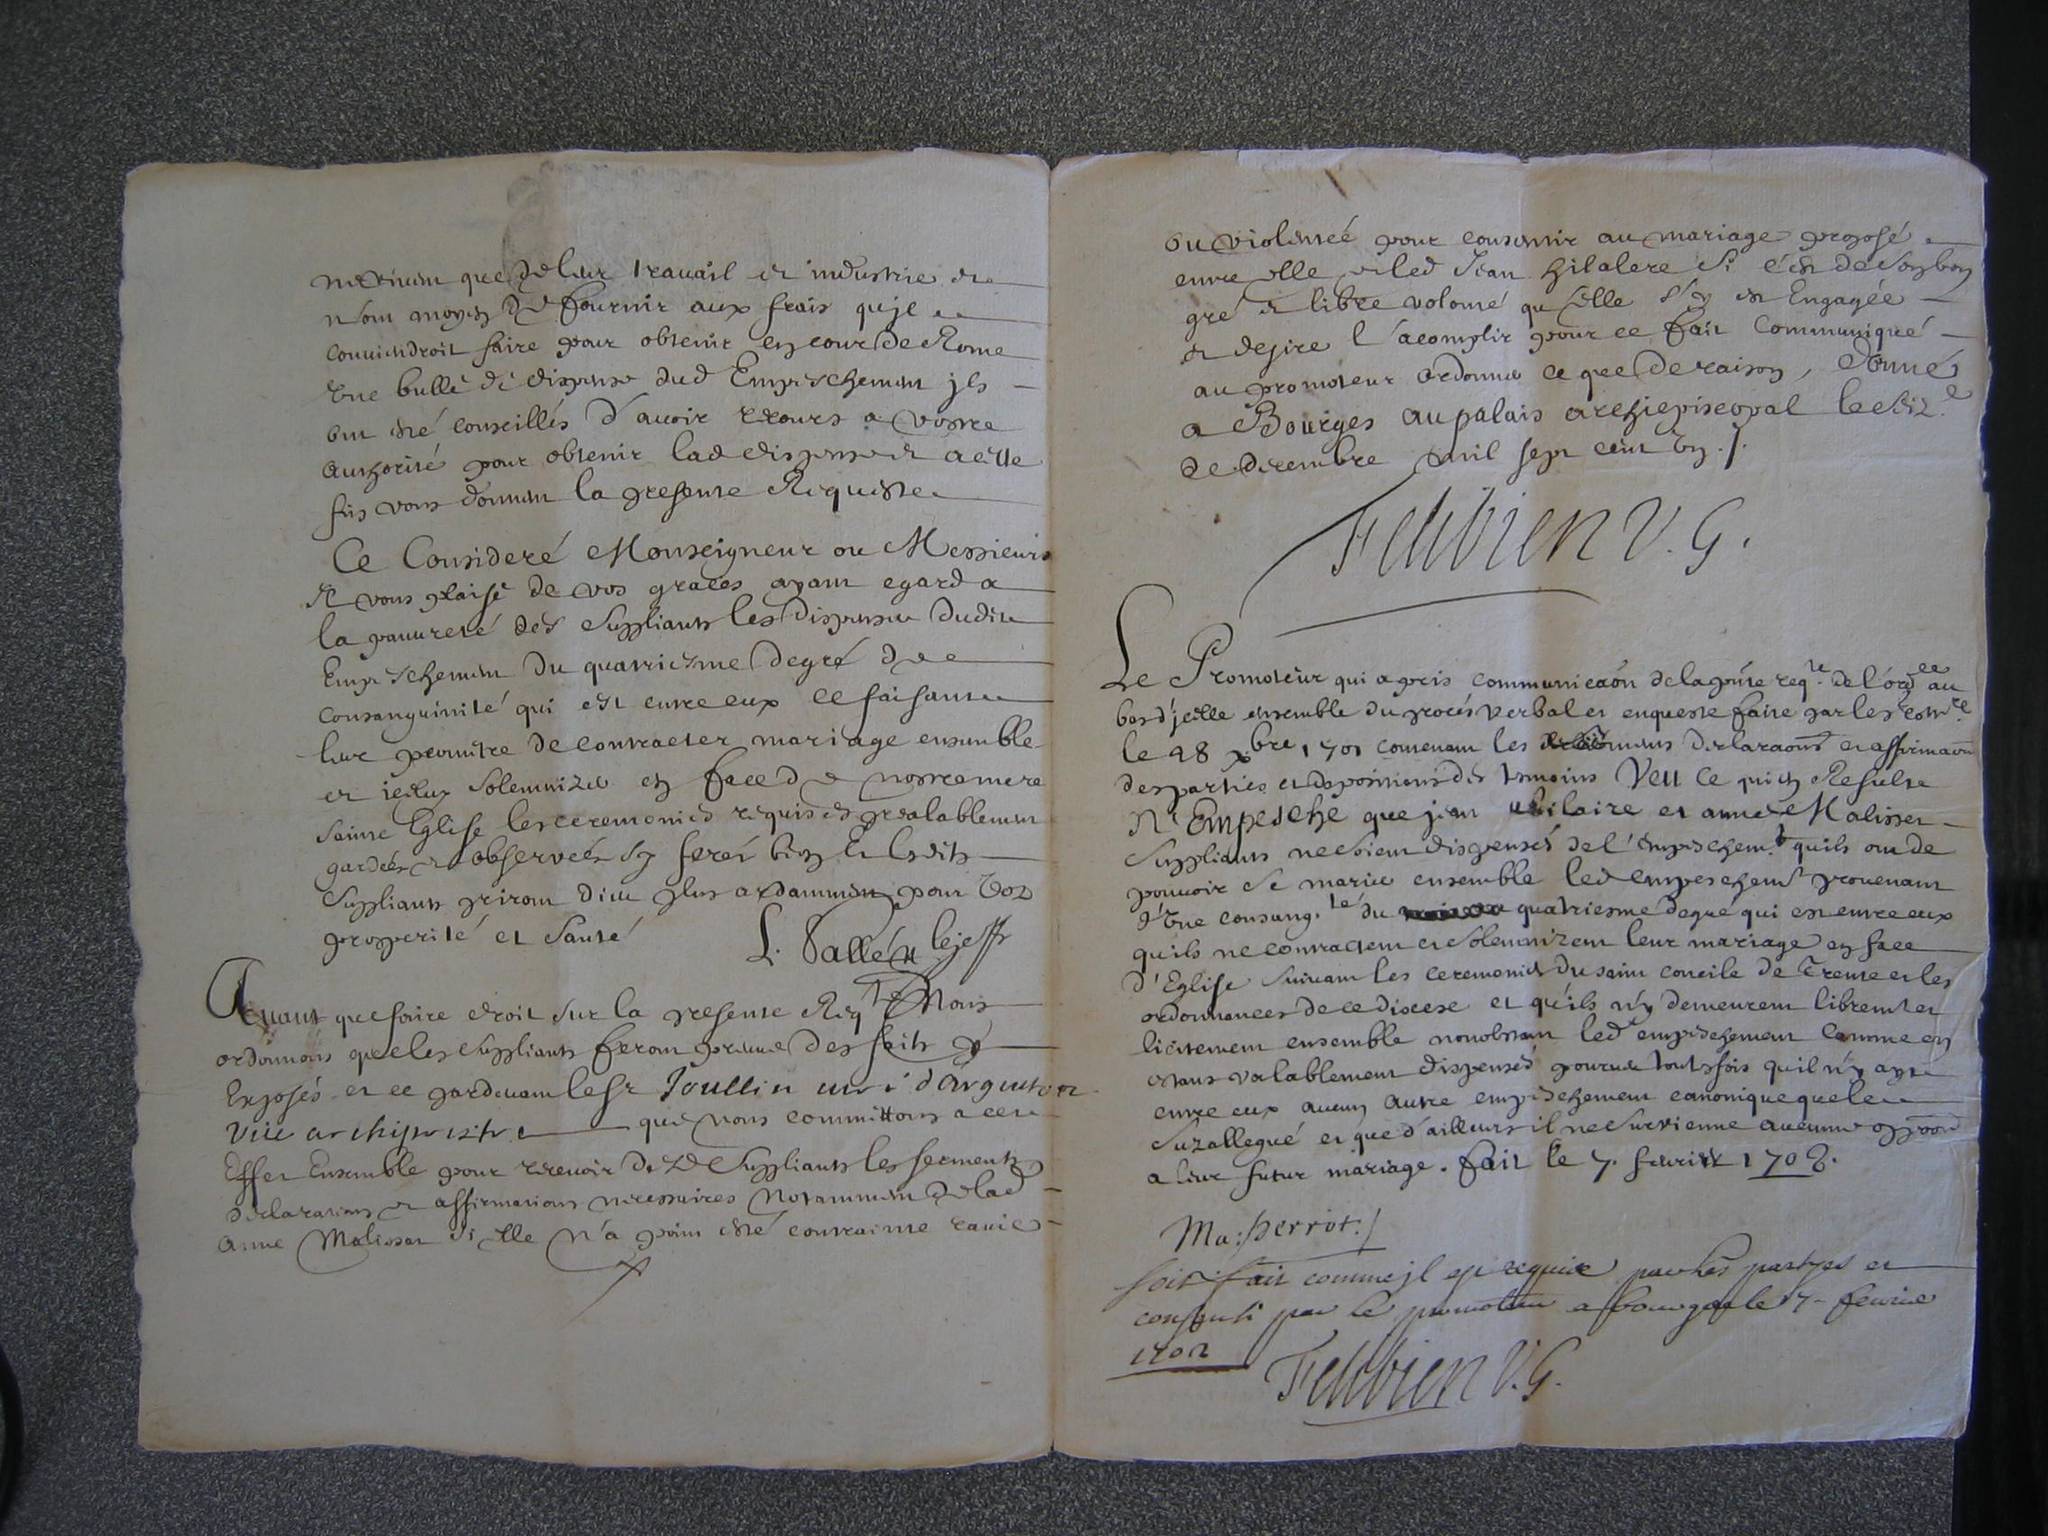 que de leur travail et industrie et
n'ont moyen de fournir aux frais qu'jl
conviendroit faire pour obtenir en cour de Rome
Une bulle de dispense dud Empeschement jls
ont esté conseillés d'avoir recours a vostre
authorité pour obtenir lad dispense et a cette
fin vous donnent la presente Requeste
Ce Consideré Monseigneur ou Messieurs
Il vous plaise de vos graces ayant egard a
la pauvreté des Suppliants les dispenser dudit
Empeschement du quatriesme degré de
consanguinité qui est entre eux ce faisant
leur permettre de contracter mariage ensemble
et iceluy solemnizer en face de nostre mere
sainte Eglise les ceremonies requises prealablement
gardées et observées Et lesdits
Suppliants priront dieu plus ardamment pour Vos
prosperité et Santé
Avant que faire droit sur la presente Reqte Nous
ordonnons que les Suppliants feront preuve des faits y
Exposés et ce pardevant le Sr Joullin curé d'Argenton
que nous committons a cet
Effet Ensemble pour recevoir desd Suppliants les serments
declarations et affirmations necessaires Notamment de lad
Anne Malisset si elle n'a point esté contrainte ravie
ou violentée pour consentir au mariage proposé
entre elle et led Jean hilalere Si c'est de son bon
gré et libre volonté qu'elle s'y est Engagée
et desire l'acomplir pour ce fait Communiqué
au promoteur ordonner ce que de raison, donné
a Bourges au palais archiepiscopal le
de decembre mil sept cent un ./.
Felibien V. G.
Le Promoteur qui a pris communicaon de la pnte reqte de l'ordce au
bas d'jcelle ensemble du procés verbal et enqueste faite par les
le 28 xbre 1701 contenant les serments declaraons et affirmaons
des parties et depositions des temoins Veu ce qui en Resulte
N'Empesche que jean hilaire et anne Malisset
Suppliants ne soient dispensés de l'empeschemt qu'ils ont de
pouvoir se marier ensemble led empeschemt provenant
d'Une consangte du quatriesme degré qui est entre eux
qu'ils ne contractent et solemnizent leur mariage en face
d'Eglise suivant les ceremonies du saint concile de Trente et les
ordonnances de ce diocese et qu'ils n'y demeurent libremt et
licitement ensemble nonobstant led empeschement comme en
estans valablement dispensés pourveu toutesfois qu'il n'y ayt
entre eux aucun autre empeschement canonique que le
susallegué et que d'ailleurs il ne survienne aucune oppoon
a leur futur mariage. fait le 7. fevrier 1702.
Ma: perrot./
soit fait comme jl est requis par les partyes et
consenti par le promoteur a bourges le 7 fevrier
1702
Felibien V. G.